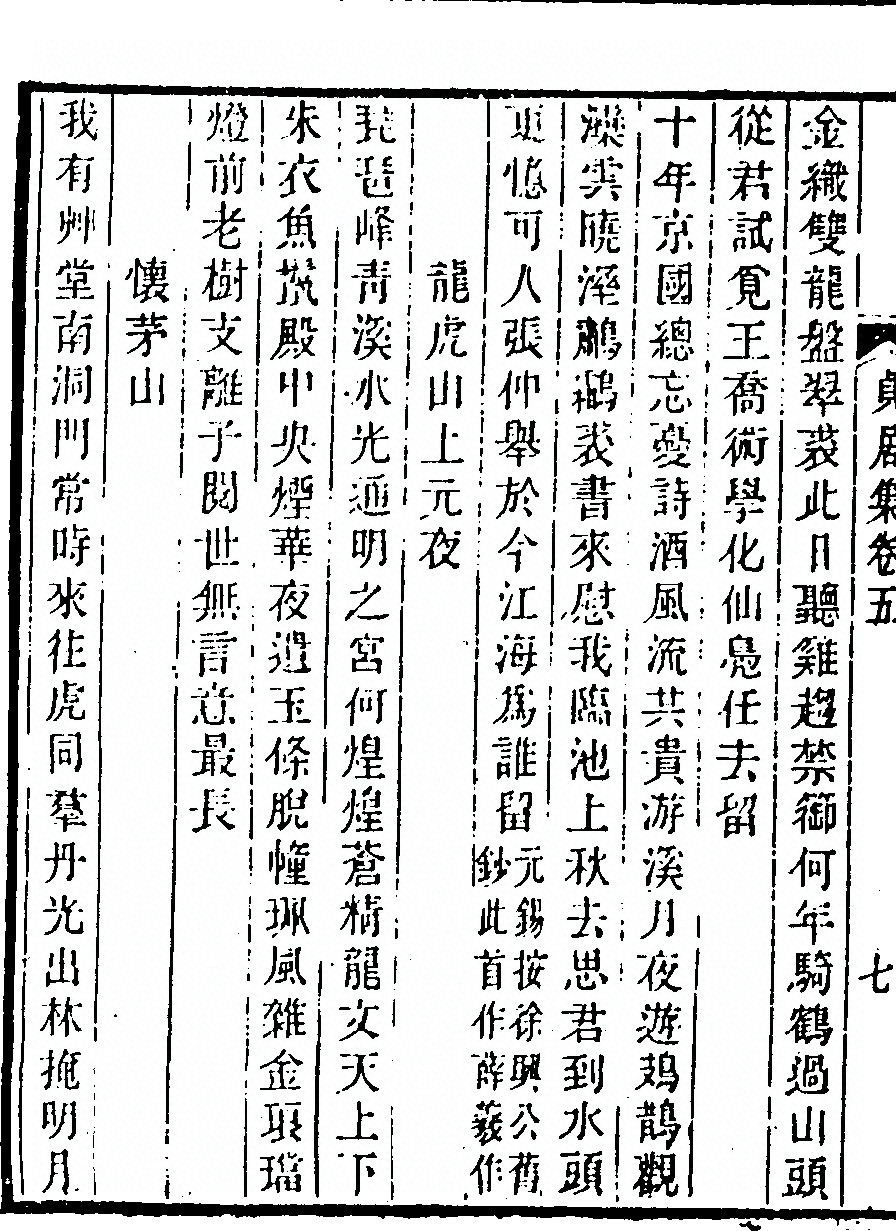 貞居集卷五
七
金織雙龍盤翠裘此日聽雞趨禁御何年騎鶴過山頭
從君試覓王喬術學化仙鳧任去留
十年京國總忘憂詩酒風流共貴游溪月夜遊鳷鵲觀
灤雲曉溼鷫鸘裘書來慰我臨池上秋去思君到水頭
更憶可人張仲舉於今江海為誰留元錫按徐興公舊
鈔此首作薛羲作
龍虎山上元夜
琵琶峰青溪水光通明之宮何煌煌蒼精龍文天上下
朱衣魚殿中央煙華夜遣玉條脫幢珮風雜金琅璫
燈前老樹支離子閱世無言意最長
懷茅山
我有艸堂南洞門常時來往虎同羣丹光出林掩明月